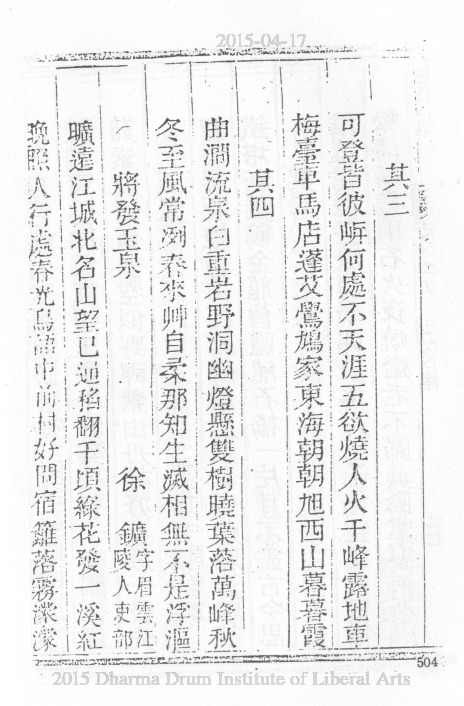 2015-04-17
其三
可登皆彼㟁何處不天涯五欲燒人火千峰露地車
梅臺車馬店蓬艾鷽鳩家東海朝朝旭西山暮暮霞
其四
曲澗流泉白重岩野洞幽燈懸雙樹曉葉落萬峰秋
冬至風常冽春來艸自柔那知生滅相無不是浮漚
將發玉泉 徐 鑛 字眉雲江陵人吏部
曠遠江城北名山望已通稻翻千頃綠花發一溪紅
晚照人行處春光鳥語中前村好問宿籬落霧濛濛
504
2015 Dharma Drum Institute of Liberal Arts